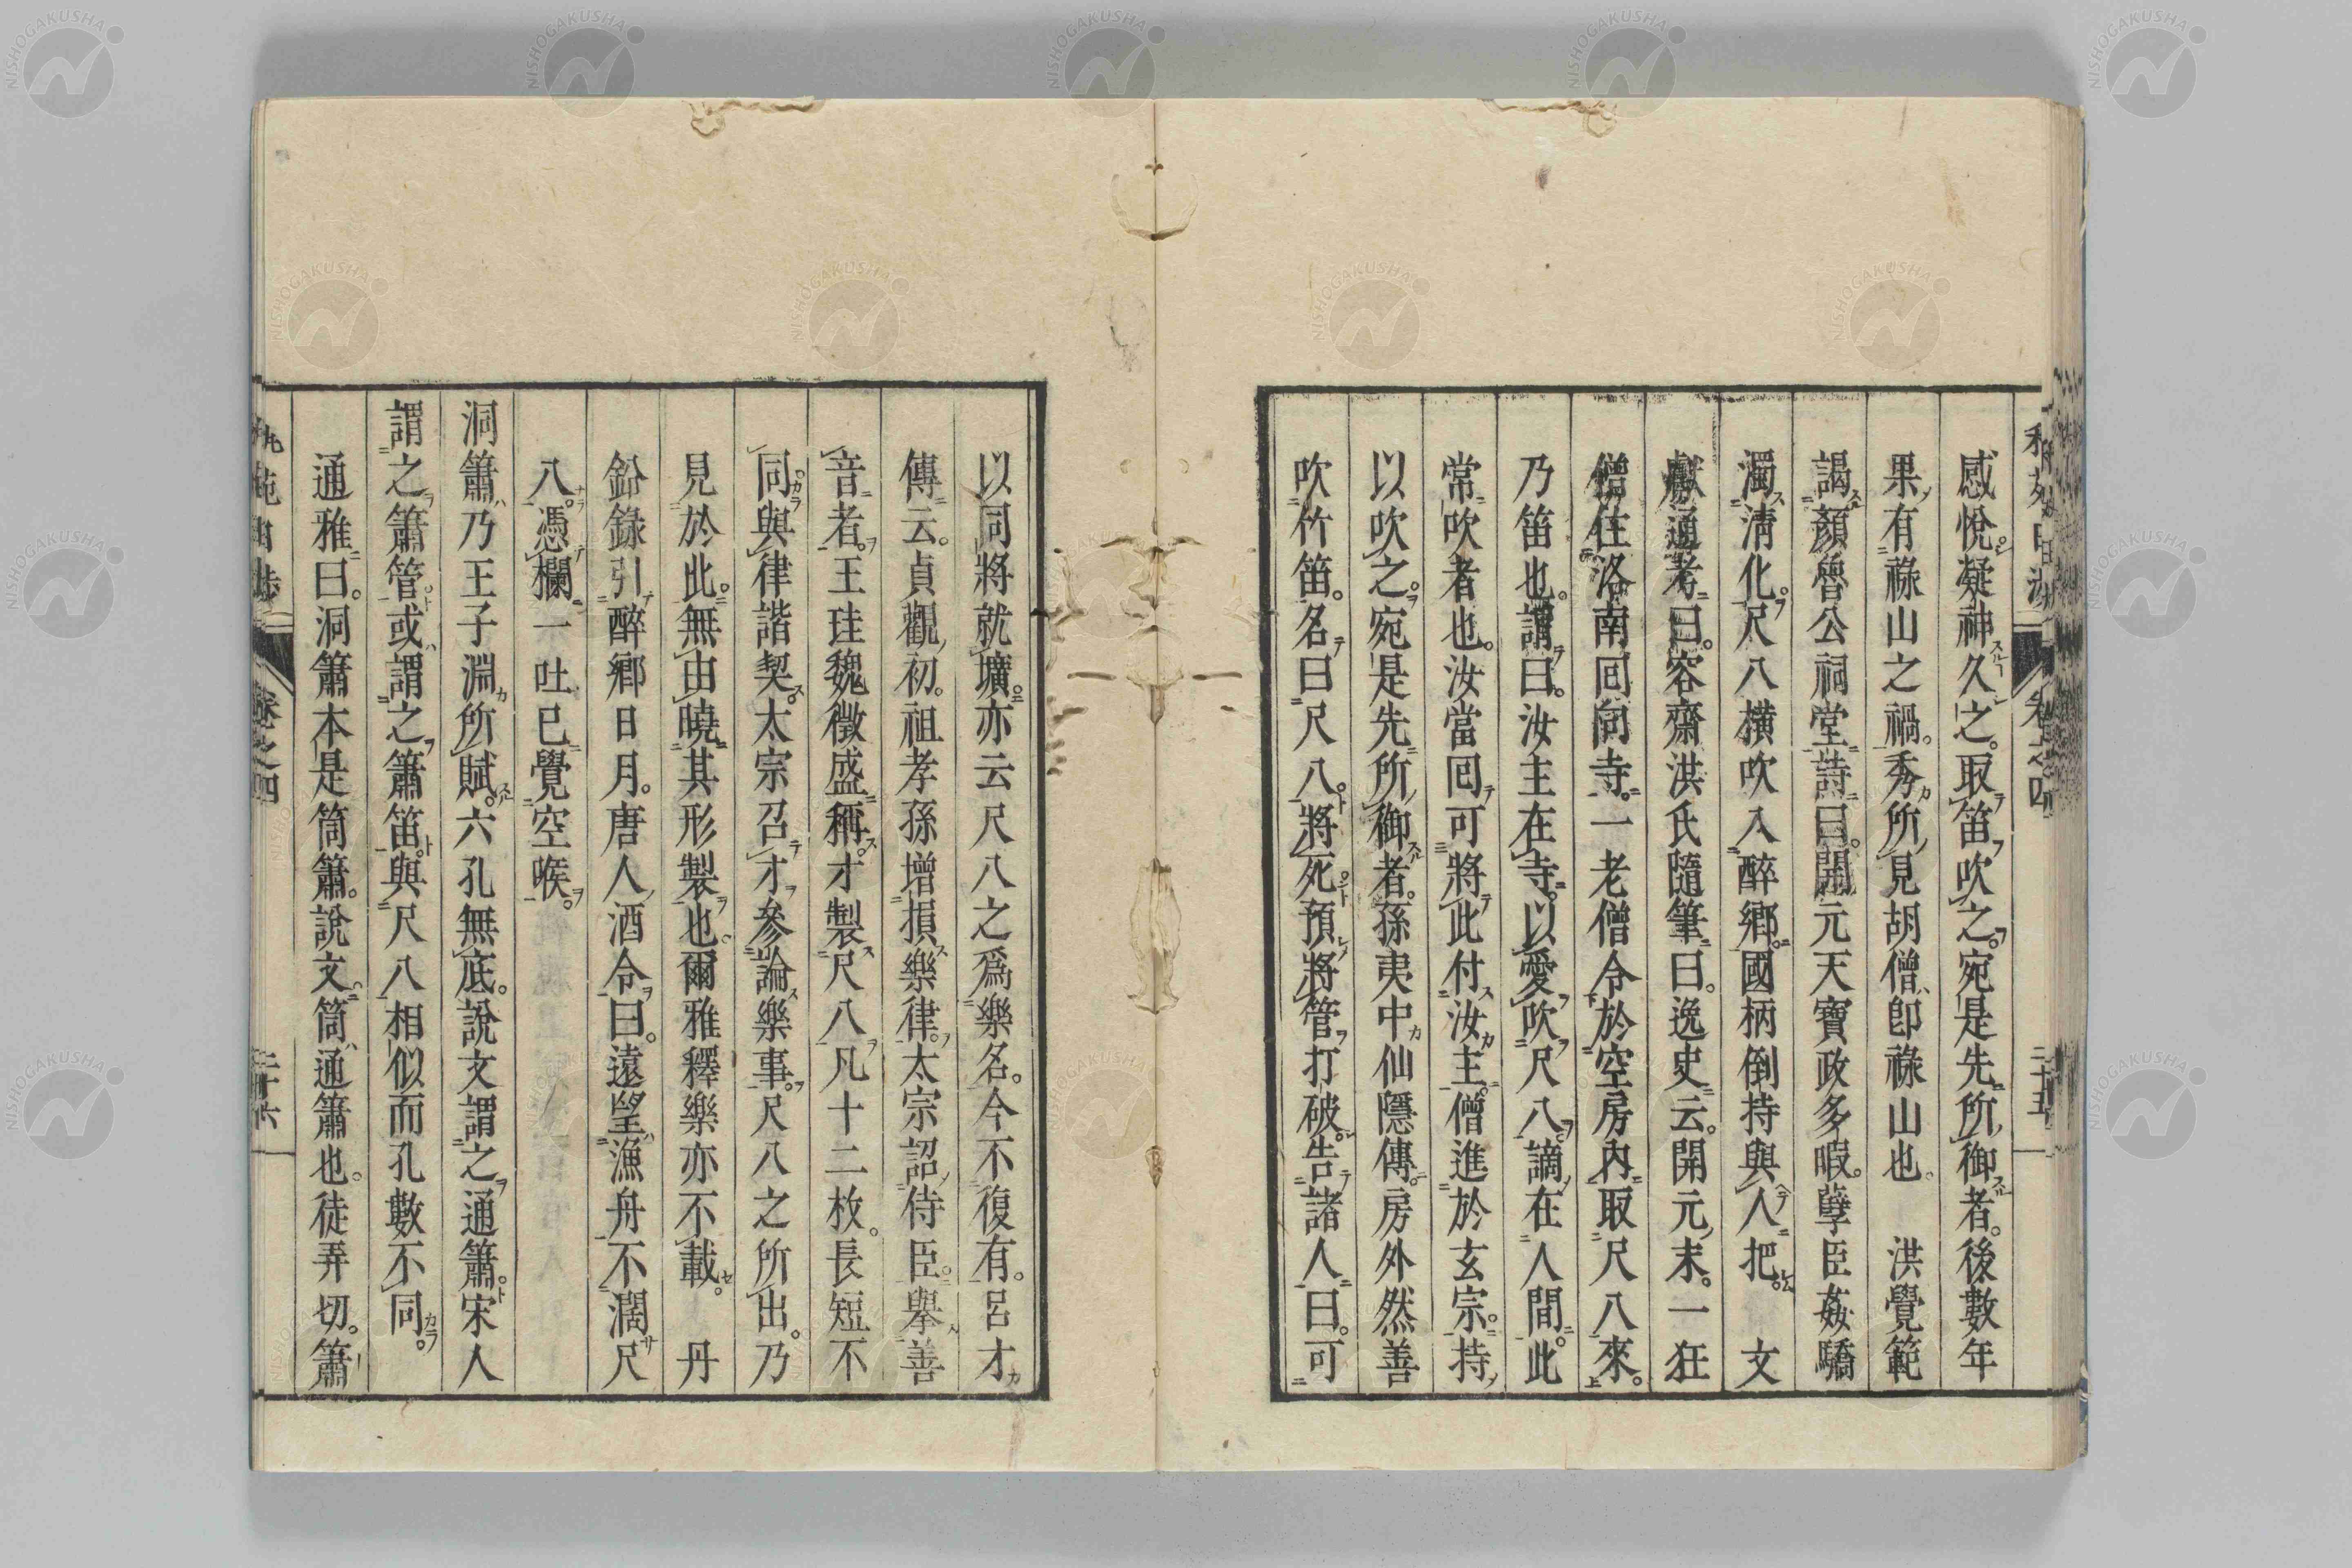 感悅凝神久之。取笛吹之。宛是先所御者。後數年
果有祿山之禍。秀所見胡僧、卽祿山也。 洪覺範
謁顏魯公祠堂詩曰。開元天寶政多暇。孽臣姦驕
濁淸化。尺八橫吹入醉鄉。國柄倒持與人把。 文
獻通考曰。容齋洪氏隨筆曰。逸史云。開元末。一狂
僧住洛南回向寺。一老僧令於空房內取尺八來。
乃笛也。謂曰。汝主在寺。以愛吹尺八。謫在人間。此
常吹者也。汝當回可將此付汝主。僧進於玄宗。持
以吹之。宛是先所御者。孫夷中仙隱傳。房外然善
吹竹笛。名曰尺八。將死預將管打破。告諸人曰。可
以同將就壙。亦云尺八之爲樂名。今不復有。呂才
傳云。貞觀初。祖孝孫增損樂律。太宗詔侍臣。擧善
音者。王珪魏徵盛稱才製尺八。凡十二枚。長短不
同。與律諧契。太宗召才參論樂事。尺八之所出。乃
見於此。無由曉其形製也。爾雅釋樂亦不載。 丹
鉛錄引醉鄉日月。唐人酒令曰。遠望漁舟不濶尺
八。憑欄一吐已覺空喉。
洞簫乃王子淵所賦。六孔無底。說文謂之通簫。宋人
謂之簫管。或謂之簫笛。與尺八相似而孔數不同。
通雅曰。洞簫本是筒簫。說文。筒通簫也。徒弄切。簫
卷之四 二十六